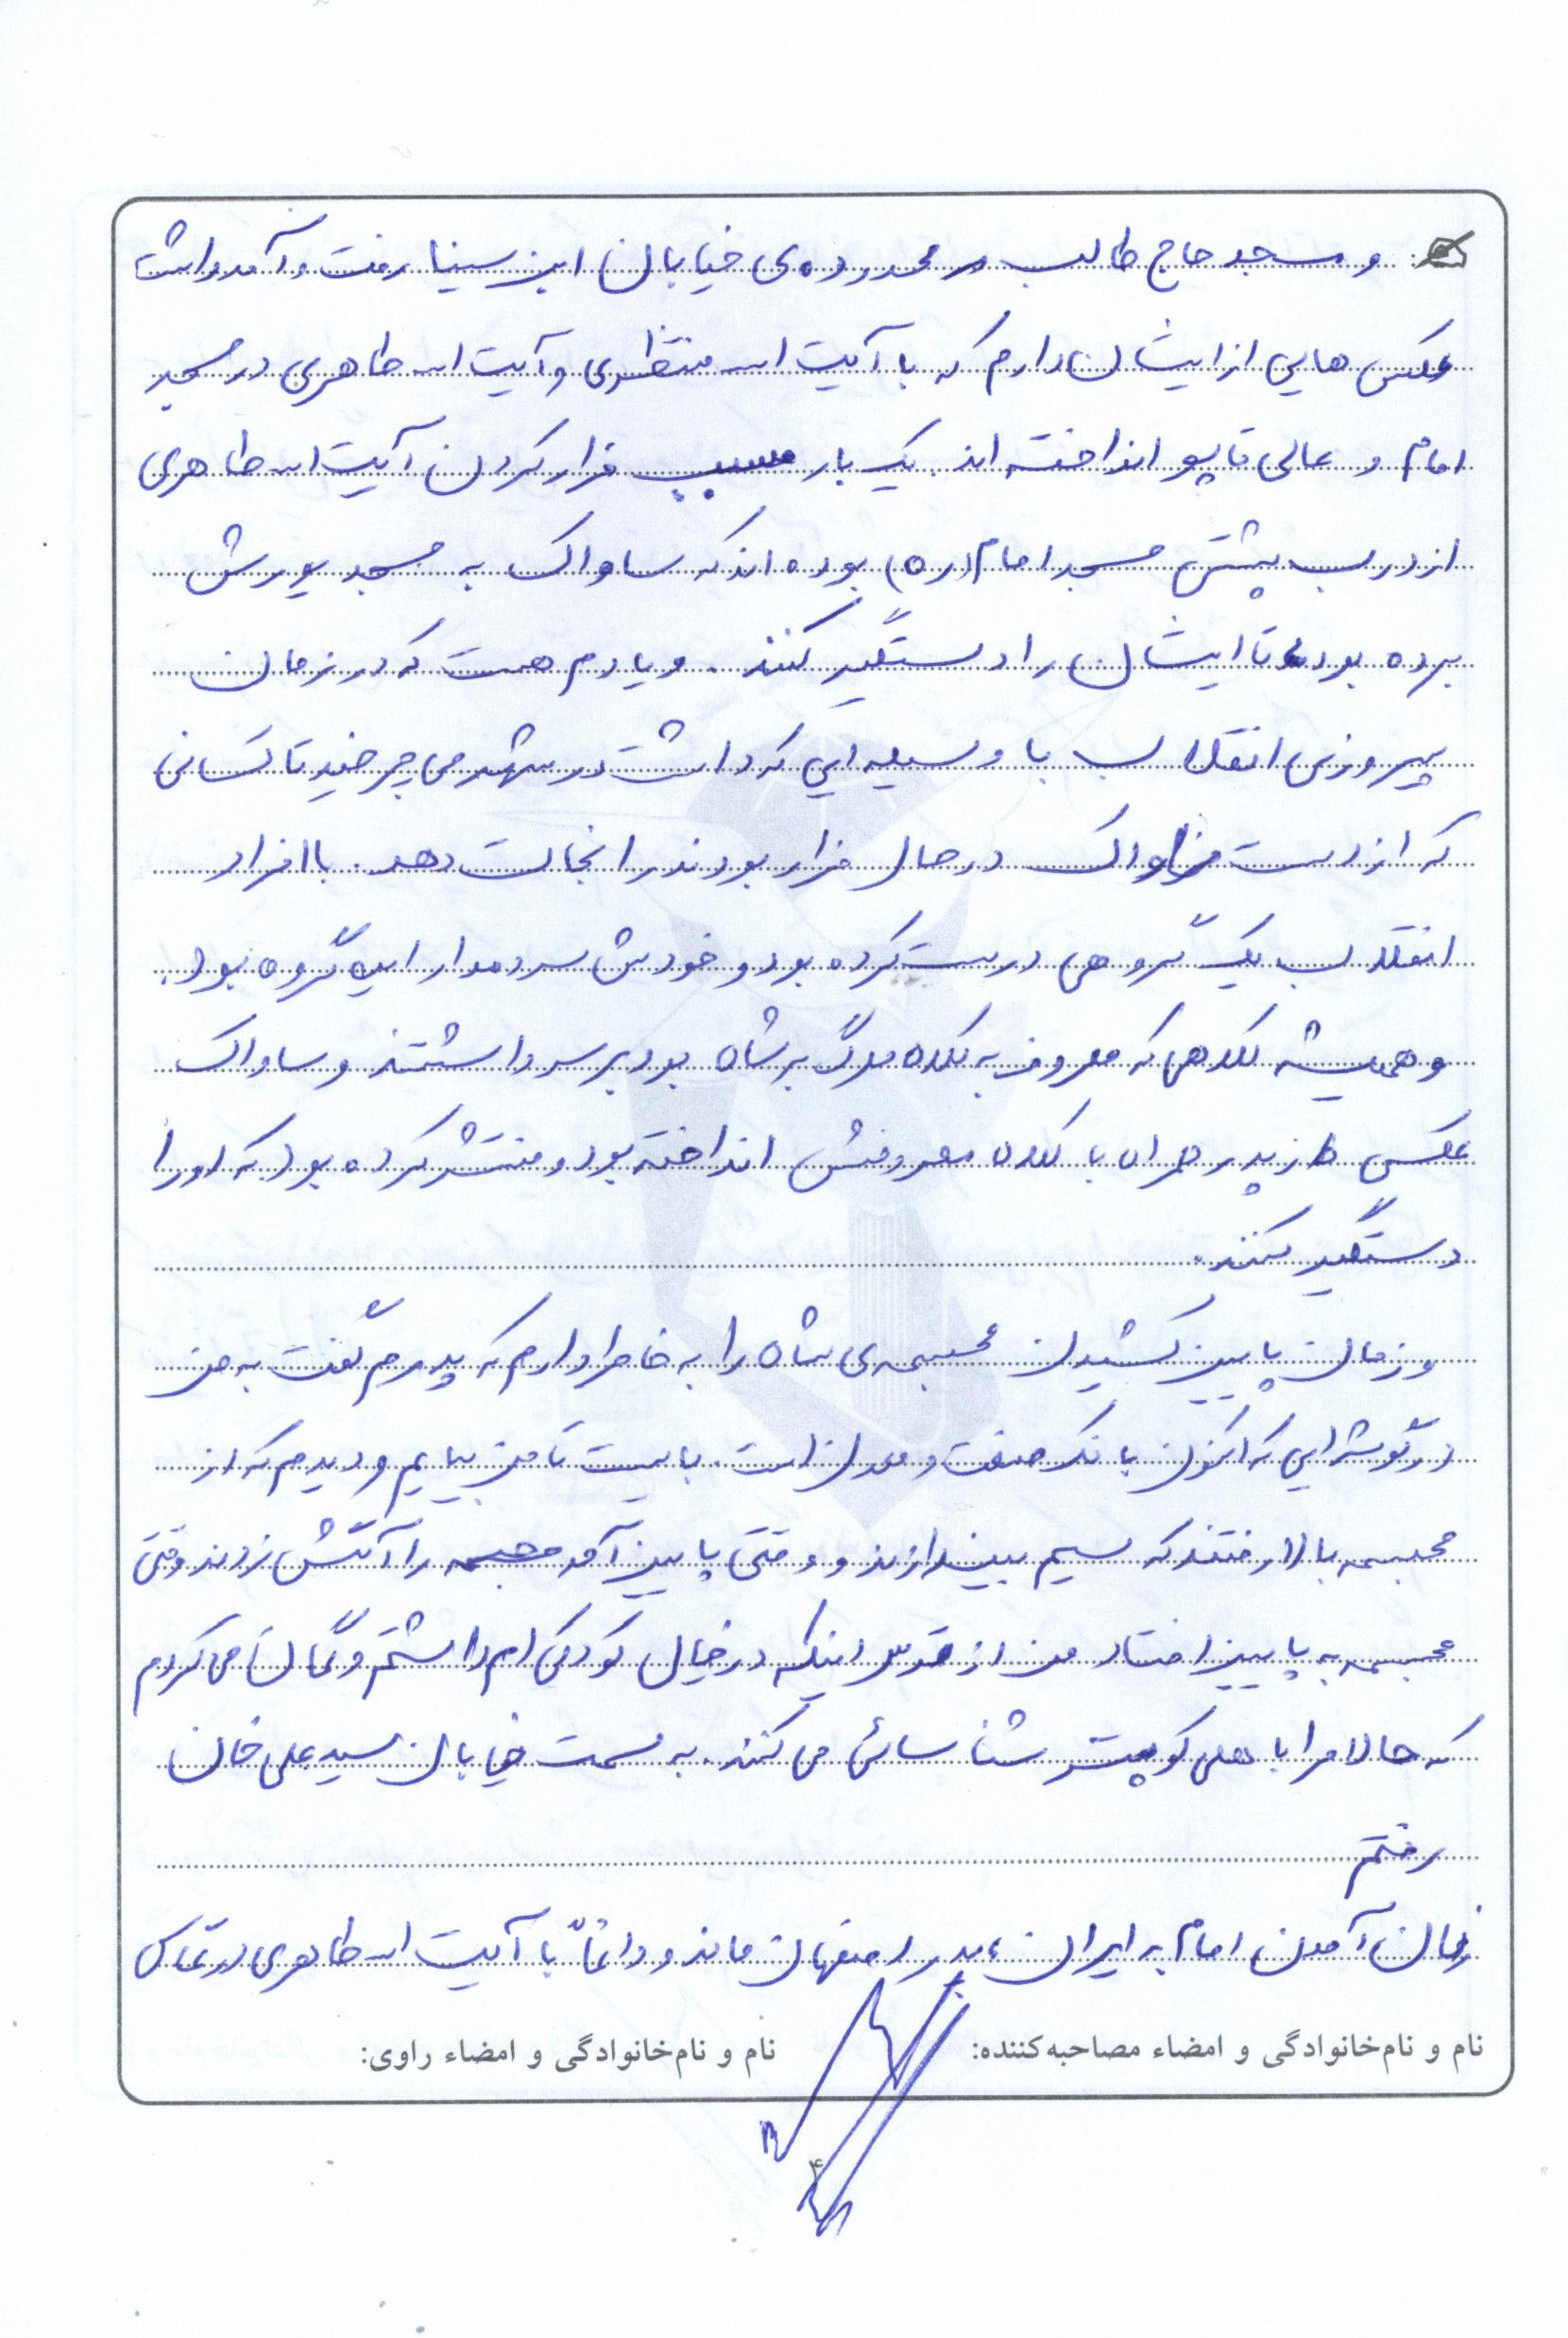 و مسجد حاج طالب در محدوده‌ی خیابان ابن سینا رفت و آمد داشت
عکس هایی از ایشان دارم که با آیت اله منتظری و آیت اله طاهری در مسجد
امام و عالی قاپو انداخته اند. یک بار مسبب فرار کردن آیت اله طاهری
از درب پشتی مسجد امام (ره) بوده اند که ساواک به مسجد یورش
برده بود تا ایشان را دستگیر کنند. و یادم هست که در زمان
پیروزی انقلاب با وسیله ایی که داشت در شهر می چرخید تا کسانی
که از دست ساواک در حال فرار بودند را نجات دهد. با افراد
انقلاب یک گروهی درست کرده بود و خودش سردمدار این گروه بود.
و همیشه کلاهی که معروف به کلاه مرگ بر شاه بود بر سر داشتند و ساواک
عکسی از پدر همراه با کلاه معروفش انداخته بود و منتشر کرده بود که او را
دستگیر کنند.
و زمان پایین کشیدن مجسمه‌ی شاه را به خاطر دارم که پدرم گفت به من
در گوشه ایی که اکنون بانک صنعت و معدن است. بایست تا من بیایم و دیدم که از
مجسمه بالا رفتند که سیم بیندازند و وقتی پایین آمد مجسمه را آتش زدند وقتی
مجسمه به پایین افتاد من از ترس اینکه در خیال کودکی ام داشتم و گمان می کردم
که حالا مرا با هلی کوپتر شناسائی می کنند. به سمت خیابان سید علی خان
رفتم
زمان آمدن امام به ایران، پدر اصفهان ماند و دائماً با آیت اله طاهری در تماس
نام و نام‌خانوادگی و امضاء مصاحبه‌کننده:
نام و نام‌خانوادگی و امضاء راوی:
۴